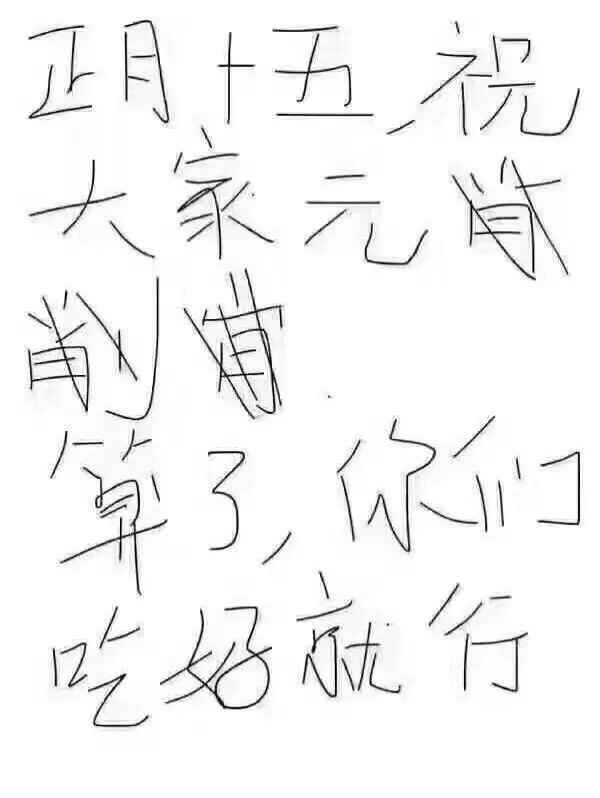 正月十五,祝
大家元肖
削宵
算了,你们
吃好就行